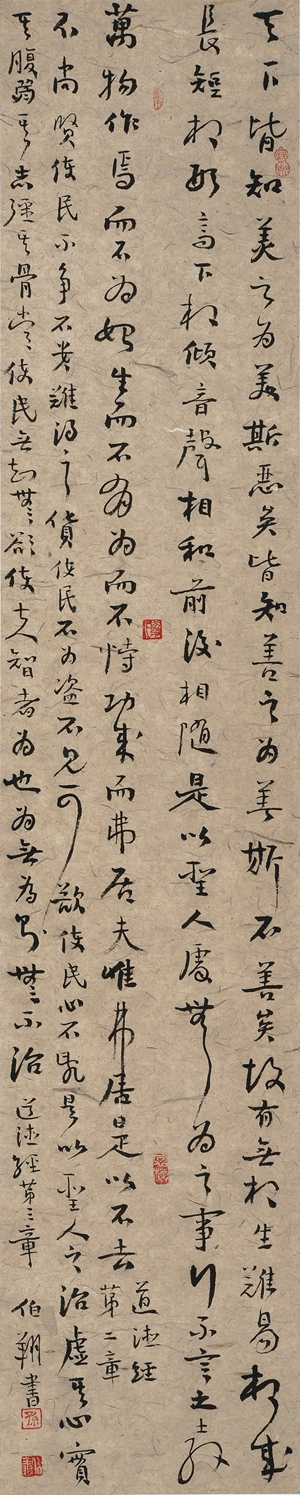 天下皆知美之为美斯恶矣皆知善之为善斯不善矣故有無相生難易相成
長短相形高下相傾音聲相和前後相随是以聖人處無为之事行不言之教
萬物作焉而不为始生而不有为而不恃功成而弗居夫唯弗居是以不去
道德經
第二章
不尚賢使民不争不贵難得之貨使民不为盗不見可欲使民心不亂是以聖人之治虚其心實
其腹弱其志强其骨常使民無知無欲使夫智者不敢为也为無为则無不治
道德經第三章
伯翔書